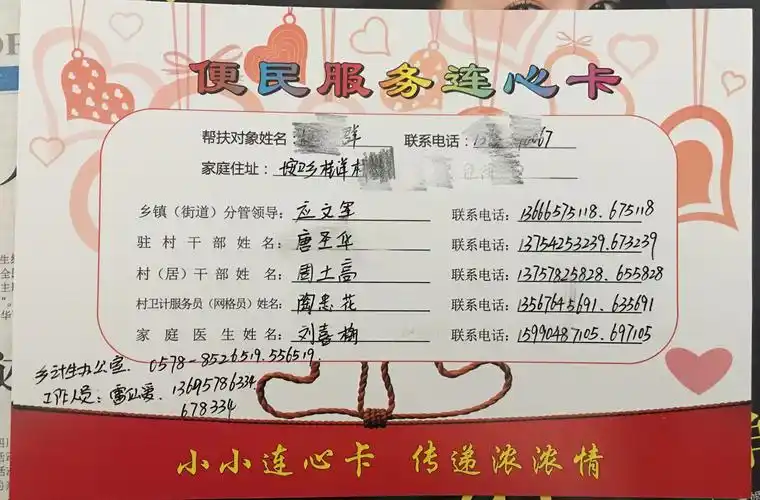 便民服务连心卡
帮扶对象姓名 群 联系电话:
家庭住址:
乡镇（街道）分管领导: 应文军 联系电话: 13666575118.675118
驻村干部姓名: 唐圣华 联系电话: 13754253239.673239
村（居）干部姓名: 周土高 联系电话: 13757825828.655828
村卫计服务员（网格员）姓名: 陶忠花 联系电话: 13567645691.635691
家庭医生姓名: 刘喜梅 联系电话: 15990487105.697105
乡计生办公室. 0578-8526519.556519
工作人员: 雷仙爱. 13695786334.
678334
小小连心卡 传递浓浓情